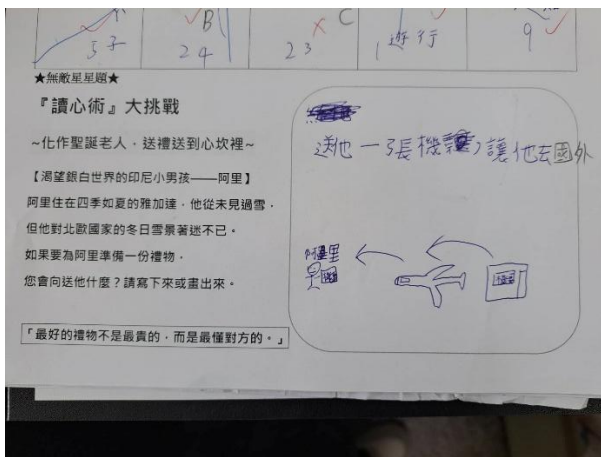 B
C
5 子
24
23
遊行
9
★無敵星星題★
『讀心術』大挑戰
~化作聖誕老人．送禮送到心坎裡~
【渴望銀白世界的印尼小男孩——阿里】
阿里住在四季如夏的雅加達．他從未見過雪．
但他對北歐國家的冬日雪景著迷不已。
如果要為阿里準備一份禮物．
您會向送他什麼？請寫下來或畫出來。
「最好的禮物不是最貴的．而是最懂對方的。」
送他一張機票,讓他去國外
阿里